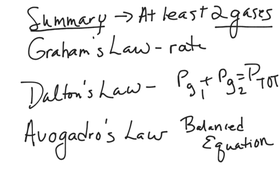 Summary → At least 2 gases
Graham's Law - rate
Dalton's Law - Pg₁ + Pg₂ = PTOT
Avogadro's Law Balanced
Equation